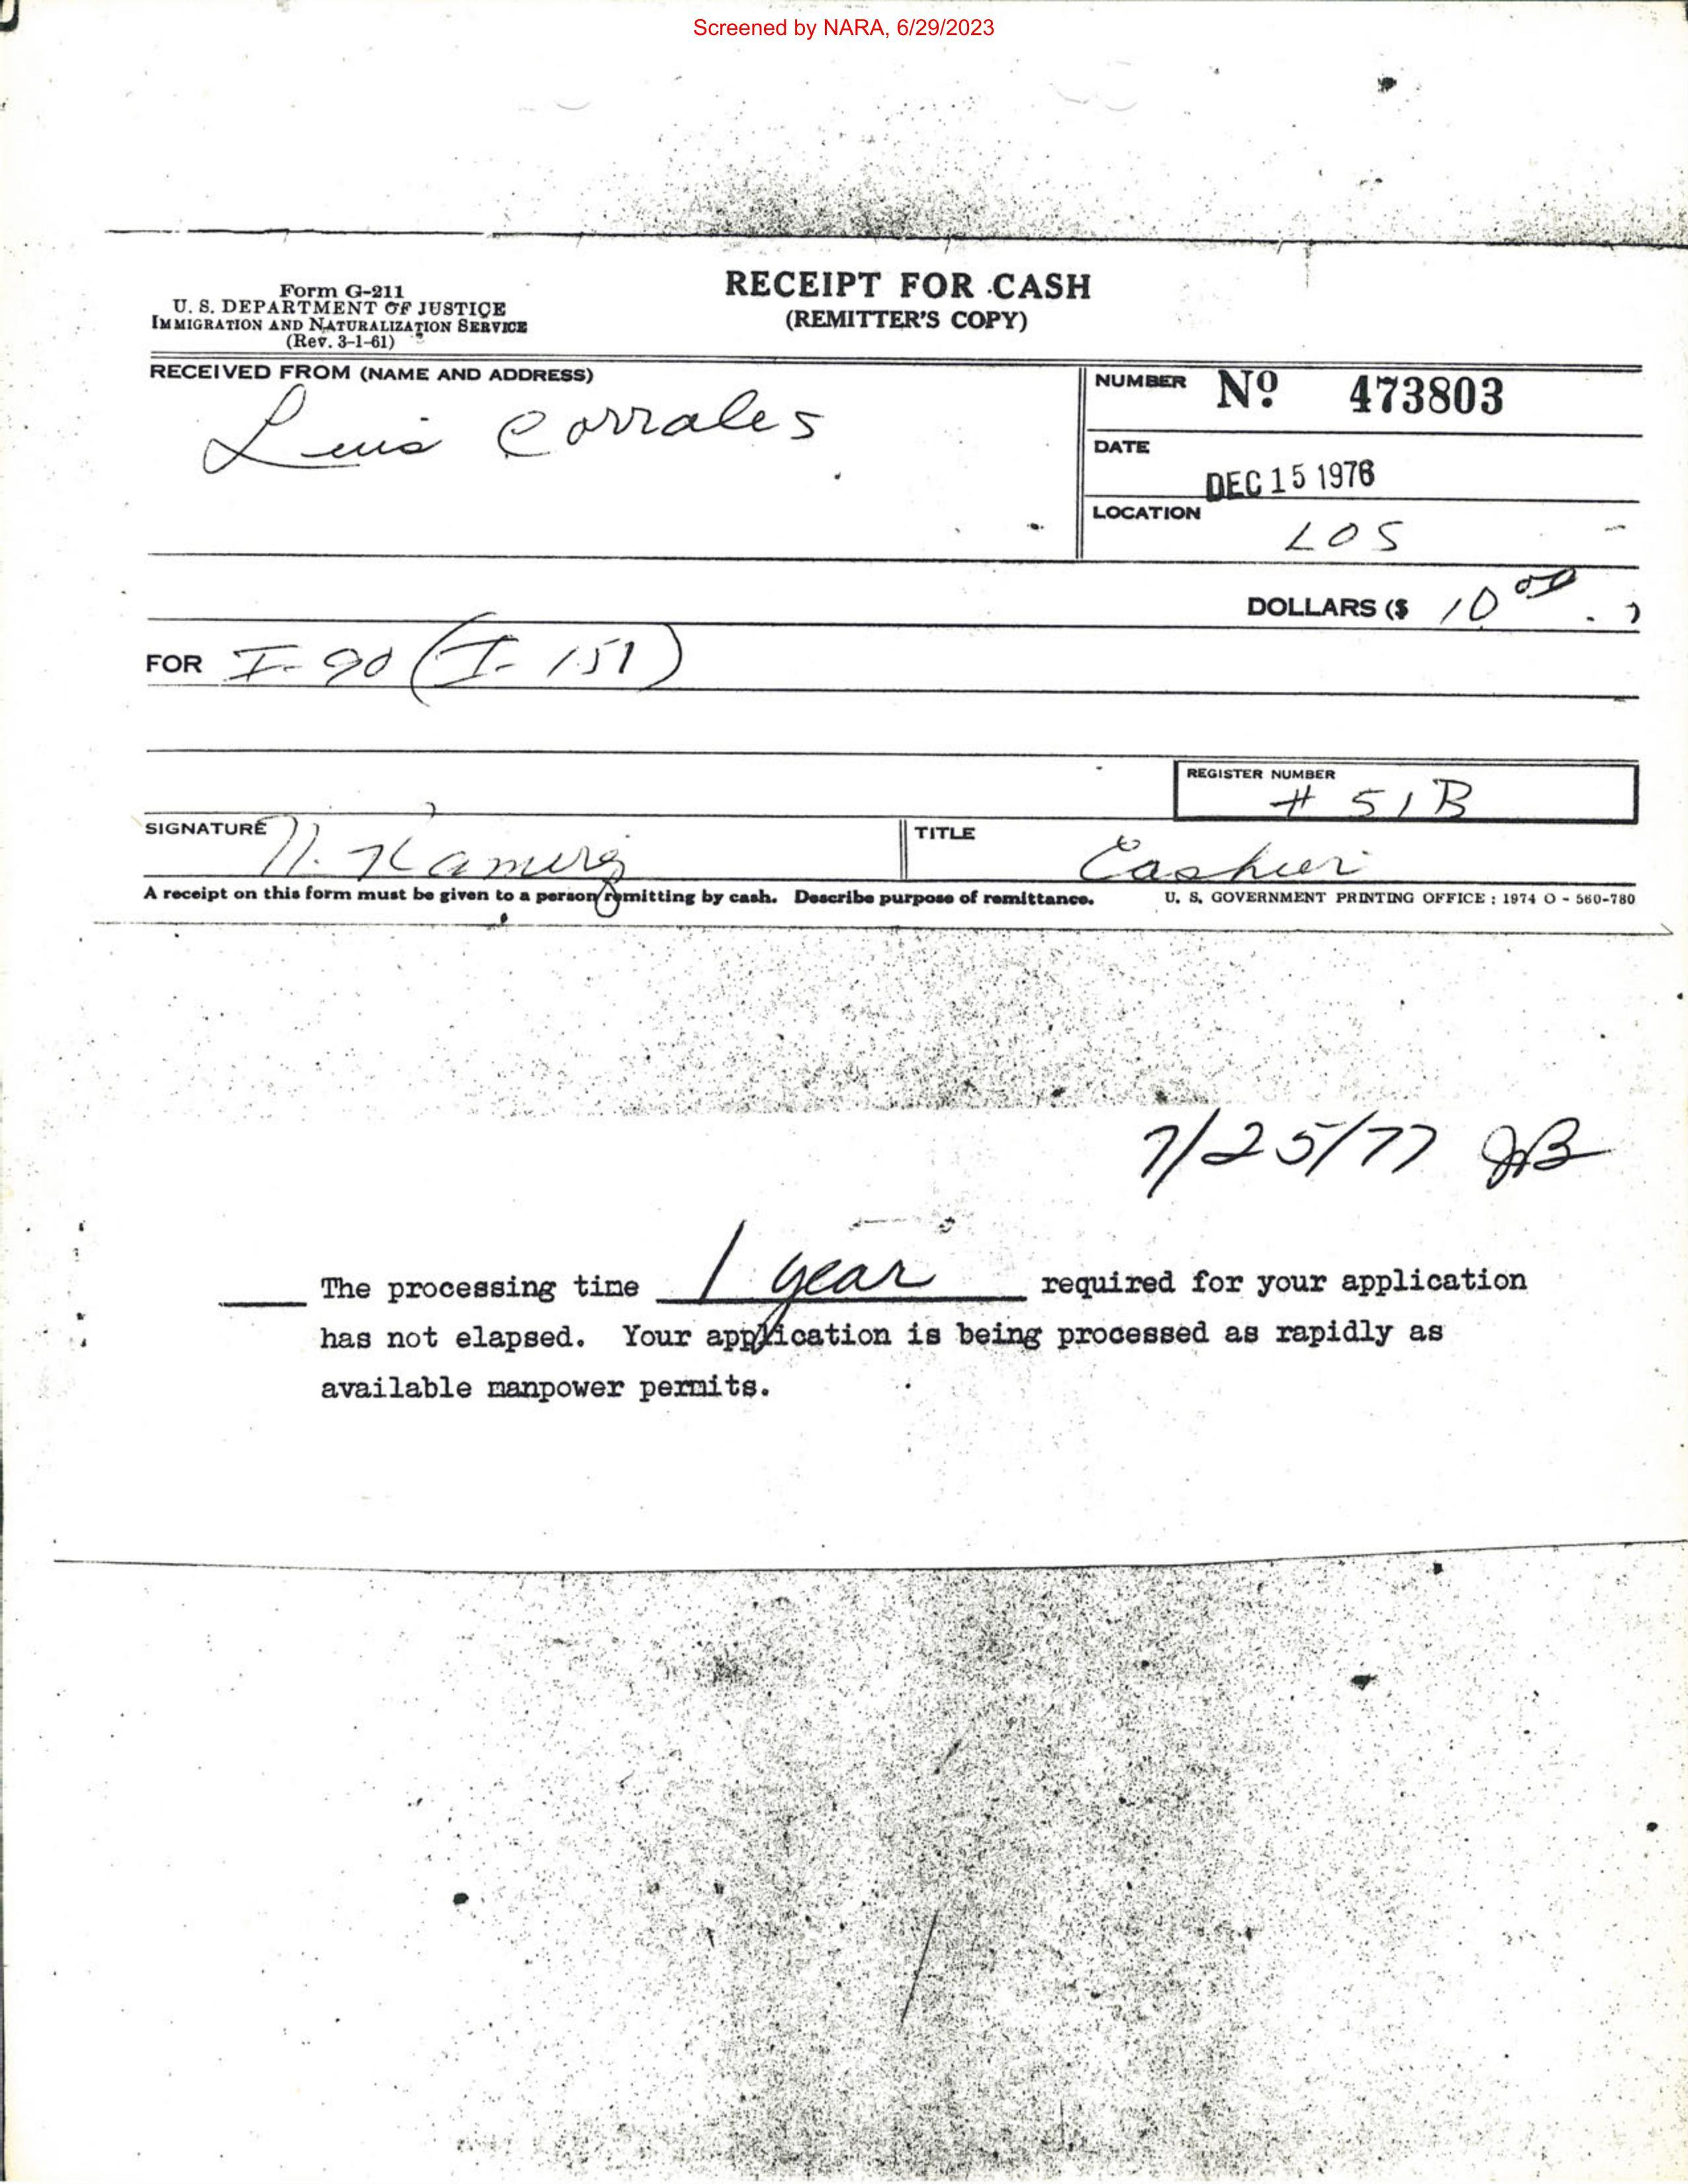 Screened by NARA, 6/29/2023
Form G-211
U. S. DEPARTMENT OF JUSTICE
IMMIGRATION AND NATURALIZATION SERVICE
(Rev. 3-1-61)
RECEIPT FOR CASH
(REMITTER'S COPY)
RECEIVED FROM (NAME AND ADDRESS)
Luis Corrales
NUMBER No. 473803
DATE
DEC 15 1976
LOCATION
LOS
DOLLARS ($ 10 00 . )
FOR I-90 (I-151)
REGISTER NUMBER
# 51B
SIGNATURE
TITLE
Cashier
A receipt on this form must be given to a person remitting by cash. Describe purpose of remittance.
U. S. GOVERNMENT PRINTING OFFICE : 1974 O - 560-780
7/25/77 JB
The processing time 1 year required for your application
has not elapsed. Your application is being processed as rapidly as
available manpower permits.